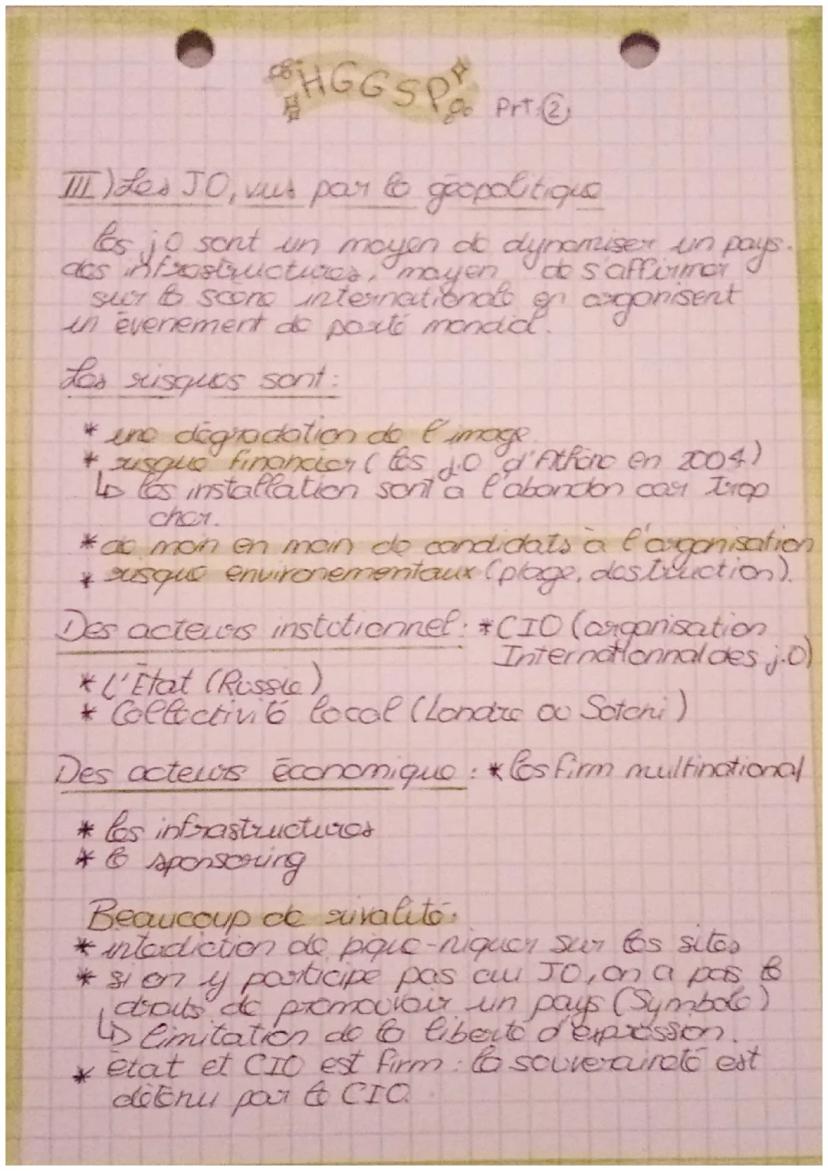 HGGSP Prt.②
III) Les JO, vus par la géopolitique
les jO sont un moyen de dynamiser un pays.
des infrastructures, moyen de s'affirmer
sur la scène internationale en organisent
un évenement de porté mondial.
Les risques sont:
* une dégradation de l'image
* risque financier (les j.O d'Athène en 2004)
↳ les installation sont à l'abandon car trop
cher.
* de moin en moin de candidats à l'organisation
* risque environementaux (plage, destruction).
Des acteurs instutionnel: * CIO (organisation
Internationnal des j.O)
* L'État (Russie)
* Collectivité local (Londre ou Sotchi)
Des acteurs économique : * les firm multinational
* les infrastructures
* le sponsoring
Beaucoup de rivalité:
* intediction de pique-niquer sur les sites
* si on y participe pas au JO, on a pas le
droits de promouvoir un pays (Symbole)
↳ limitation de la liberté d'expression.
* état et CIO est firm : la souveraineté est
détenu par le CIO.